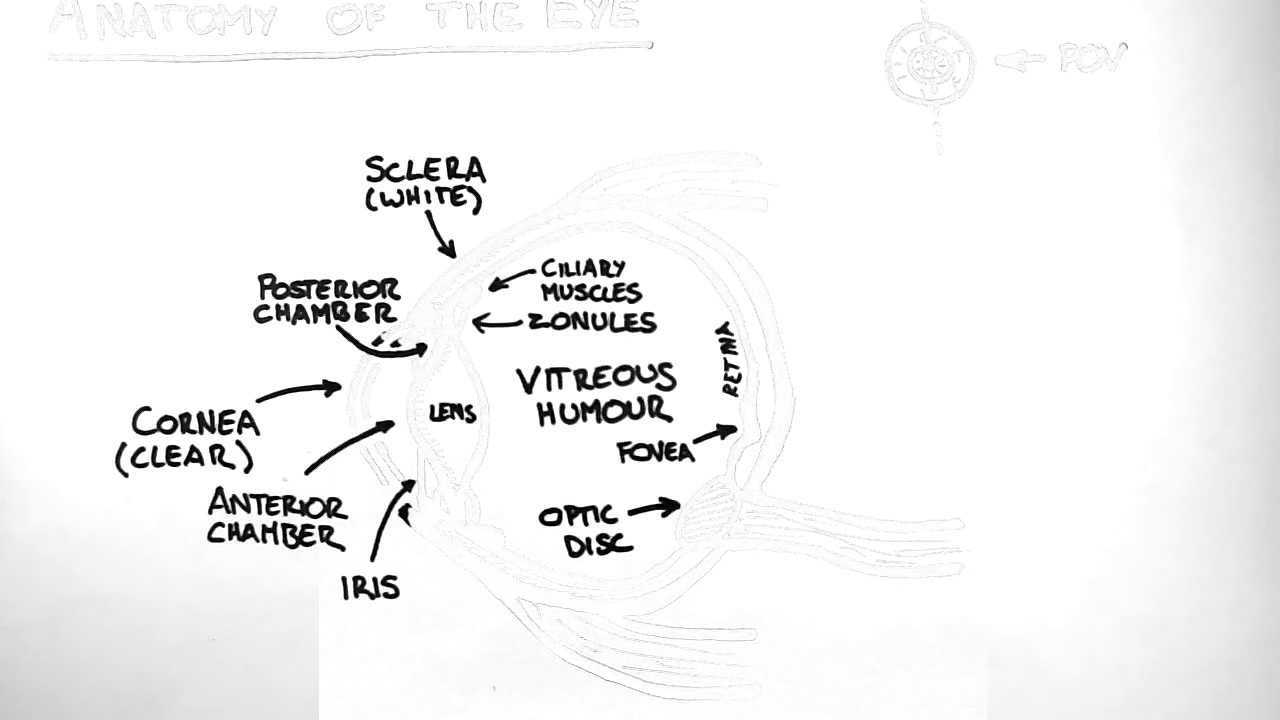 ANATOMY OF THE EYE
POV
SCLERA
(WHITE)
CILIARY
MUSCLES
POSTERIOR
CHAMBER
ZONULES
RETINA
VITREOUS
HUMOUR
LENS
CORNEA
(CLEAR)
FOVEA
ANTERIOR
CHAMBER
OPTIC
DISC
IRIS